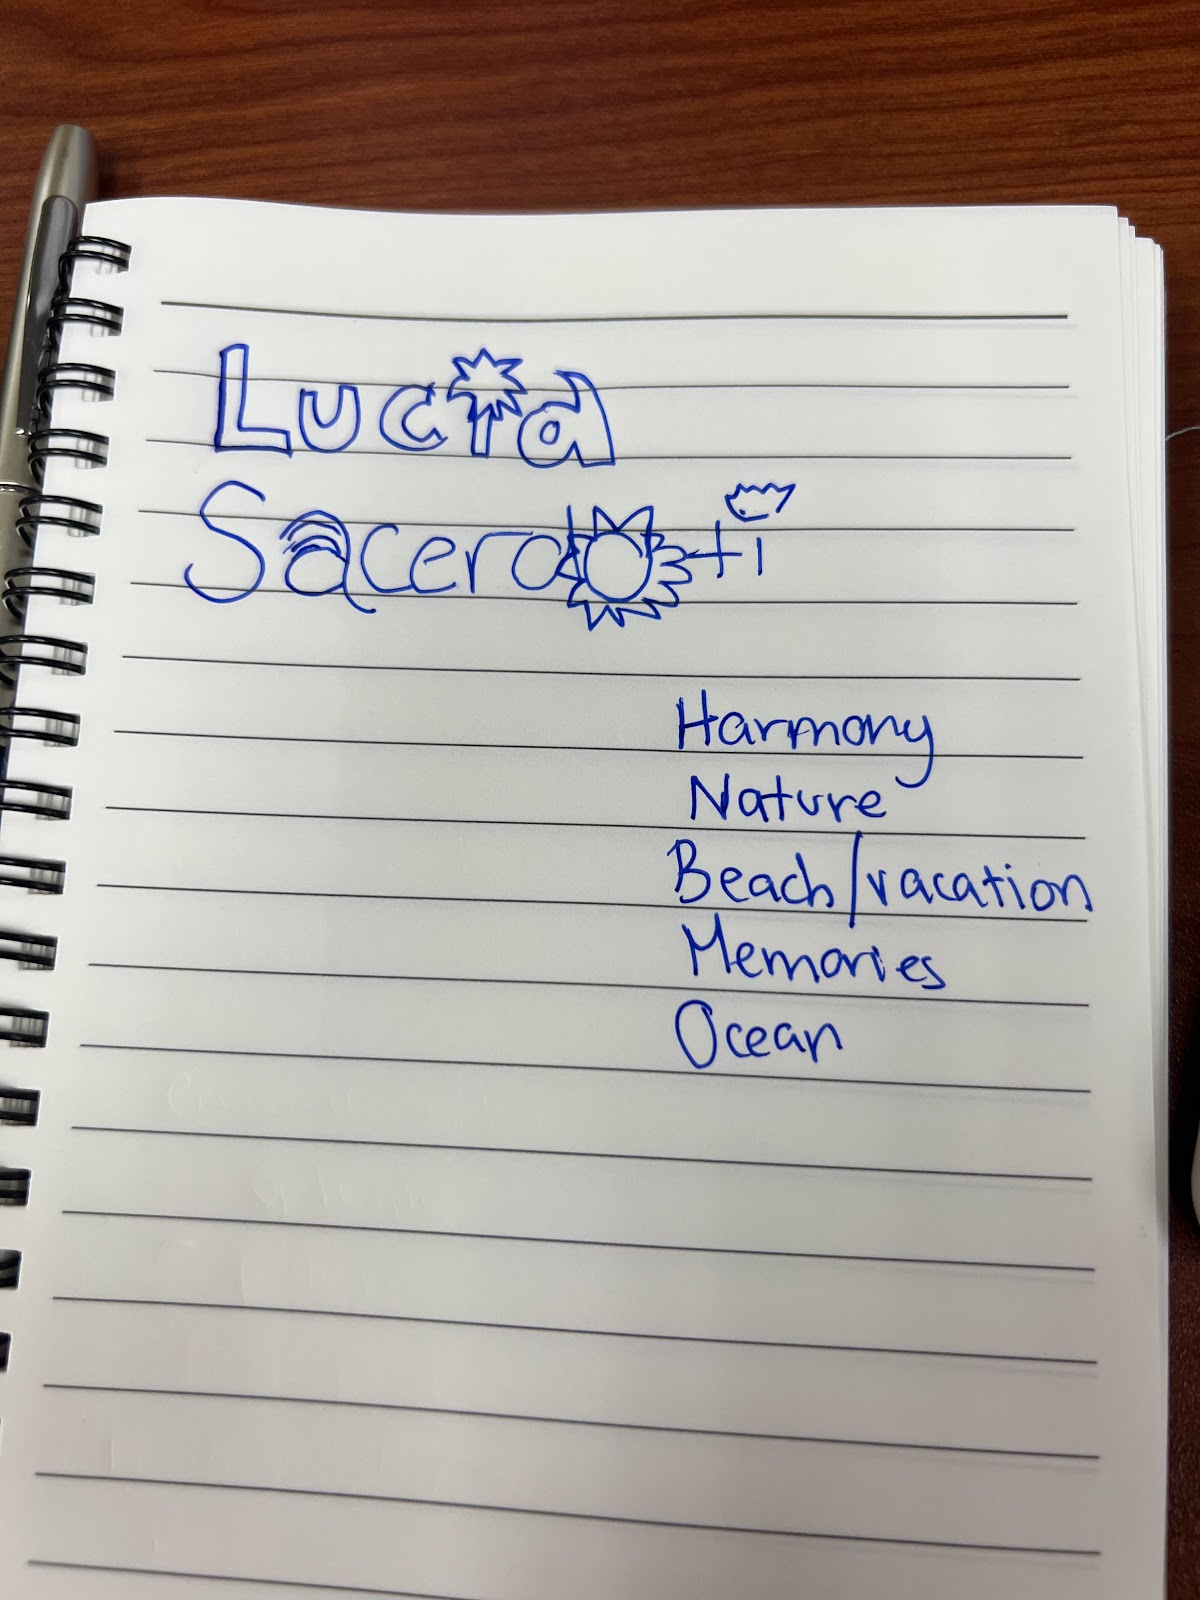 Lucia
Sacerdoti
Harmony
Nature
Beach/vacation
Memories
Ocean